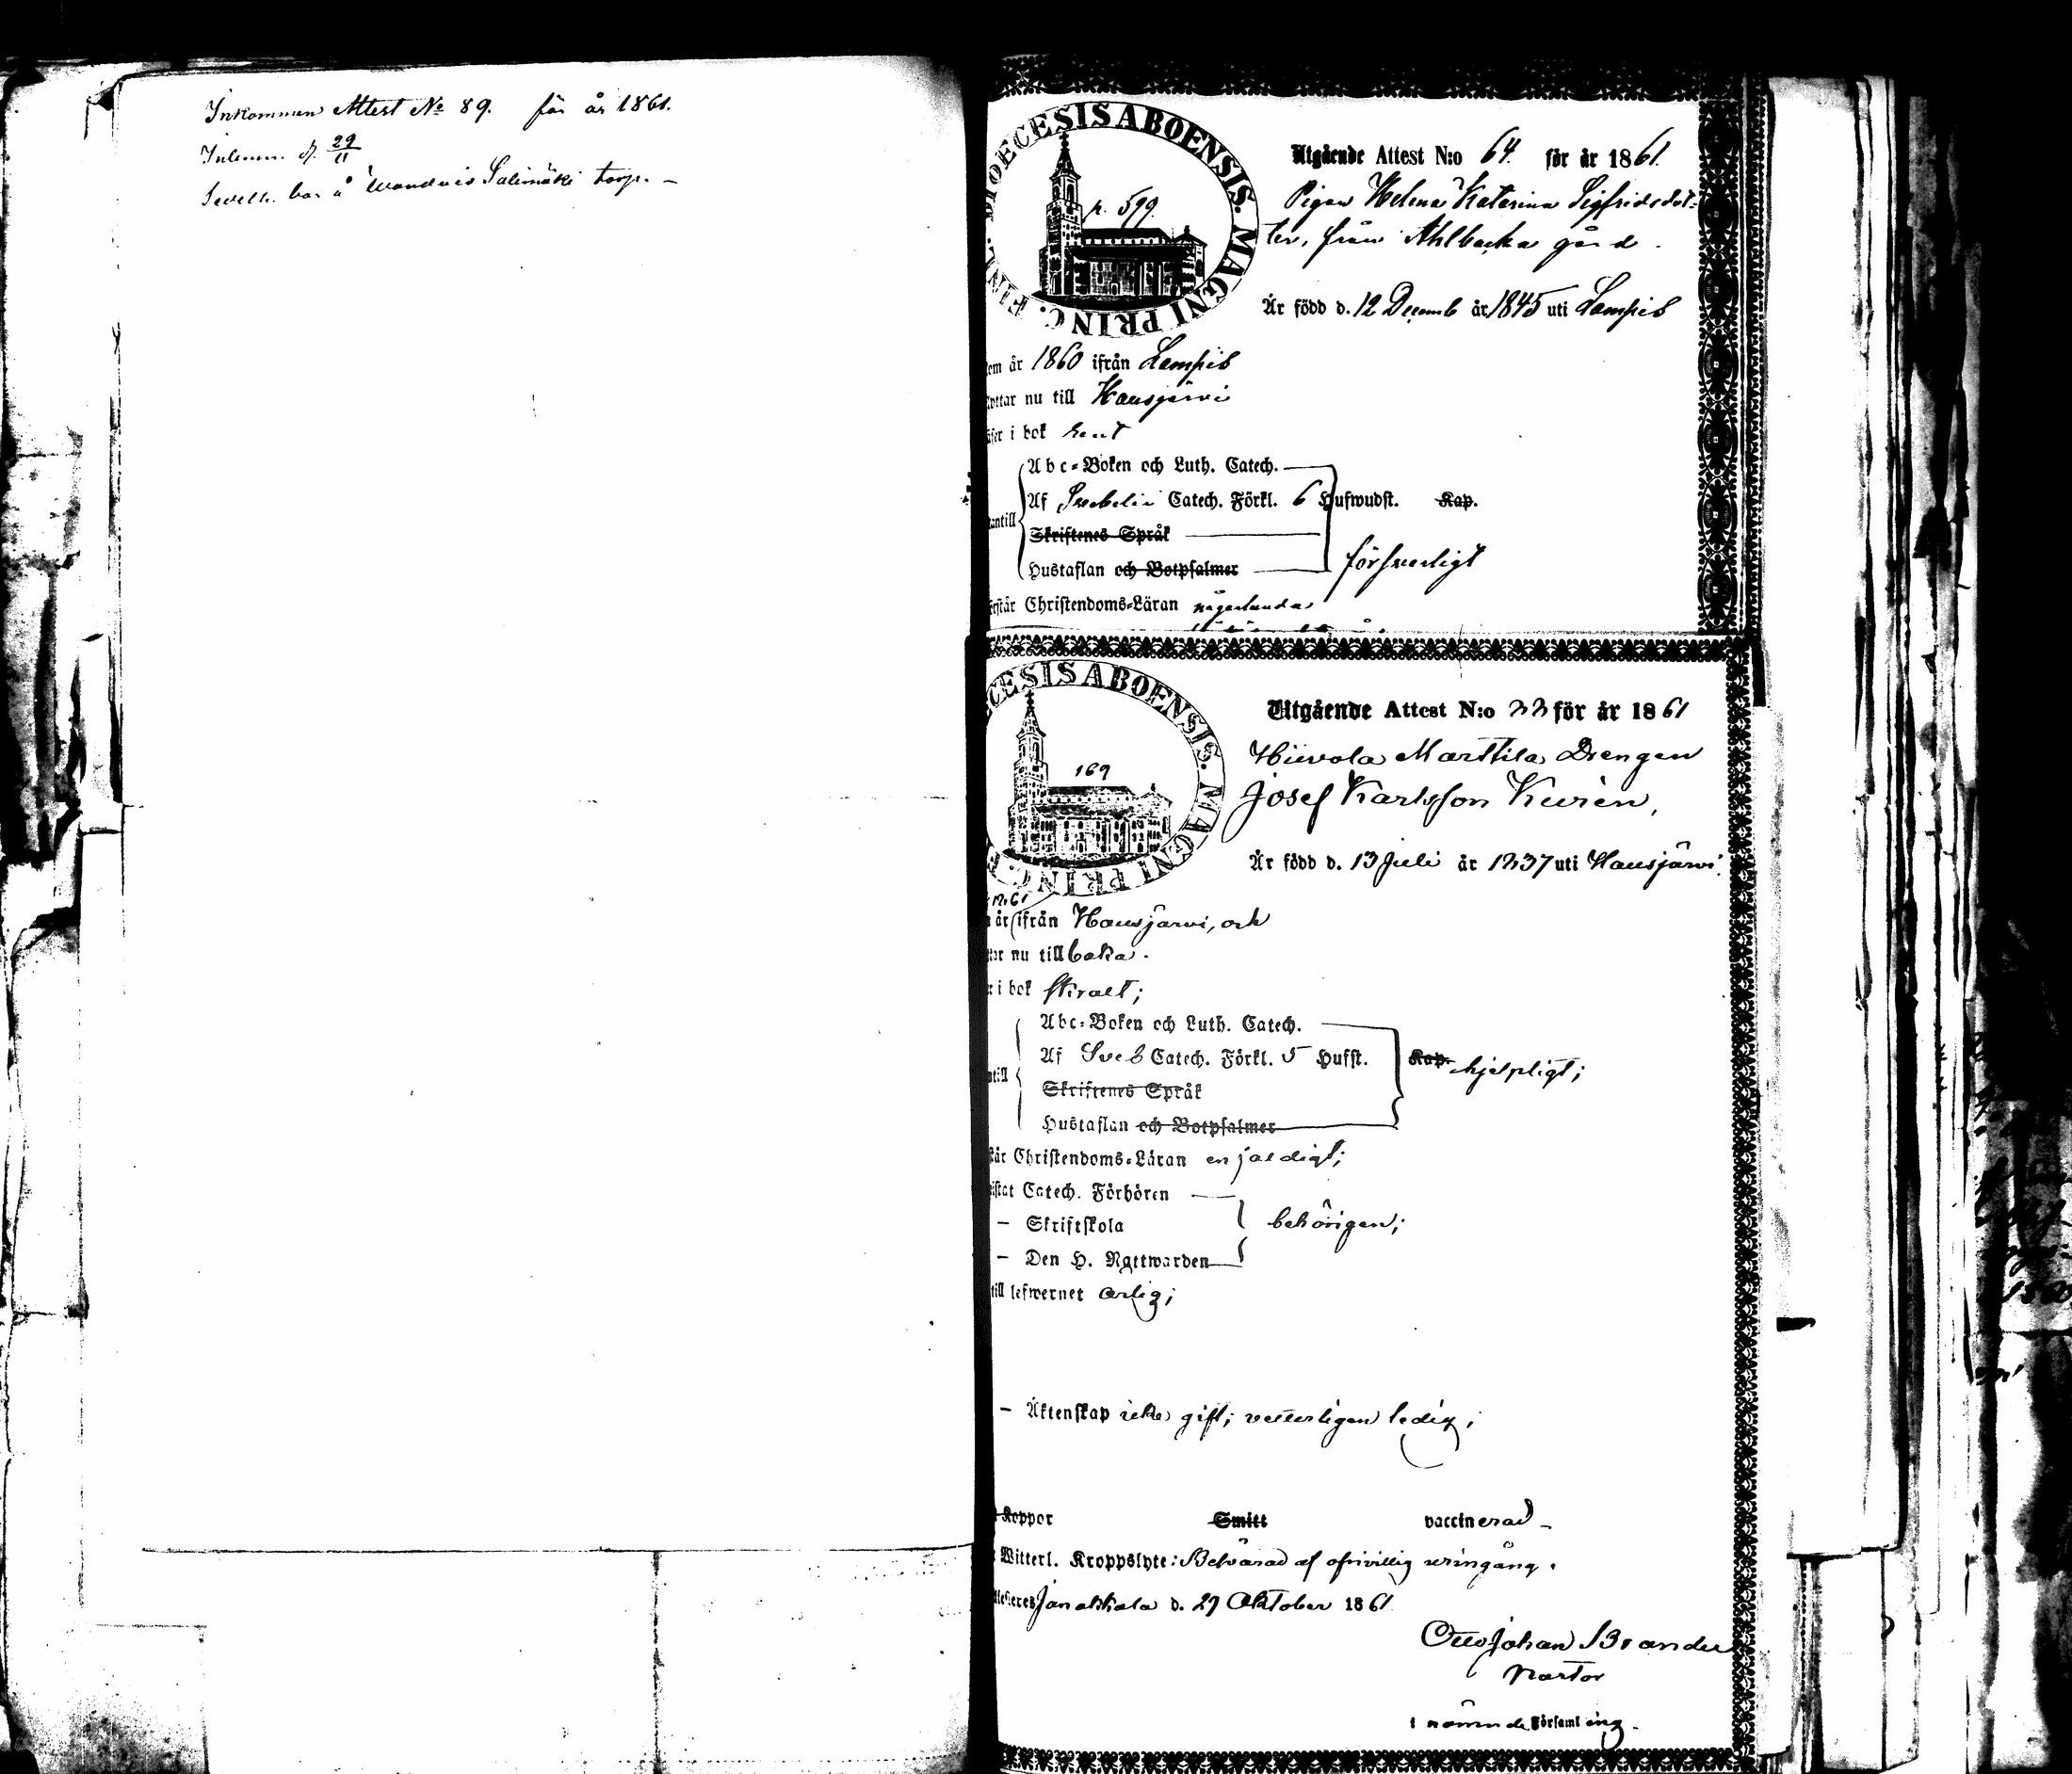 Inkommen Attest No 89. för år 1861.
Inlemn. d. 29/11
bor å Salimäki torp. –
DIOECESIS ABOENSIS. MAGNI PRINC. FINL.
p. 599.
Utgående Attest N:o 64. för år 1861.
Pigan Helena Katarina Sigfridsdot-
ter, från Ahlbacka gård.
Är född d. 12 Decemb år 1845 uti Lampis
om år 1860 ifrån Lampis
ttar nu till Hausjärvi
i bok rent
Abc-Boken och Luth. Catech.
Af Svebelii Catech. Förkl. 6 Hufwudst. Kap.
antill
Skriftenes Språk
Hustaflan och Botpsalmer försvarligt
rstår Christendoms-Läran någorlunda
CESIS ABOENSIS. MAGNI PRINC. F
169
Utgående Attest N:o 33 för år 1861
Hiivola Marttila Drengen
Josef Karlsson Kurèn,
Är född d. 13 Juli år 1837 uti Hausjärvi.
1861
år ifrån Hausjärvi, och
tar nu tillbaka.
r i bok
Abc-Boken och Luth. Catech.
Af Sveb Catech. Förkl. 5 Hufst. Kap. hjelpligt;
ntill
Skriftenes Språk
Hustaflan och Botpsalmer
tår Christendoms-Läran enfaldigt;
istat Catech. Förhören
– Skriftskola behörigen;
– Den H. Nattwarden
till lefwernet ärlig;
– Äktenskap icke gift; vetterligen ledig;
Koppor Smitt vaccinerad –
Witterl. Kroppslyte: Besvärad af ofrivillig uringång.
testeres Janakkala d. 29 Oktober 1861
Otto Johan Brander
Pastor
i nämnde Församling.